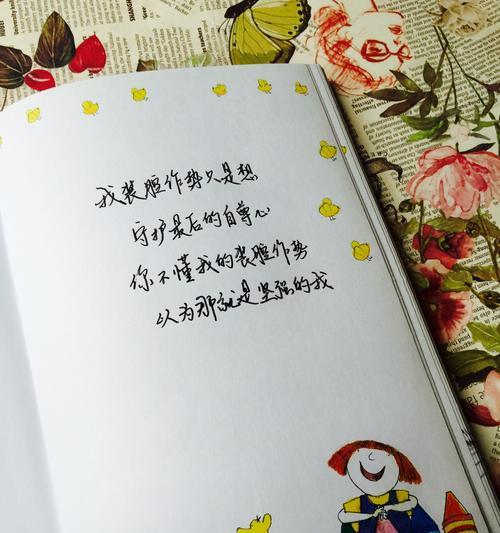 我装腔作势只是想
守护最后的自尊心
你不懂我的装腔作势
以为那就是坚强的我